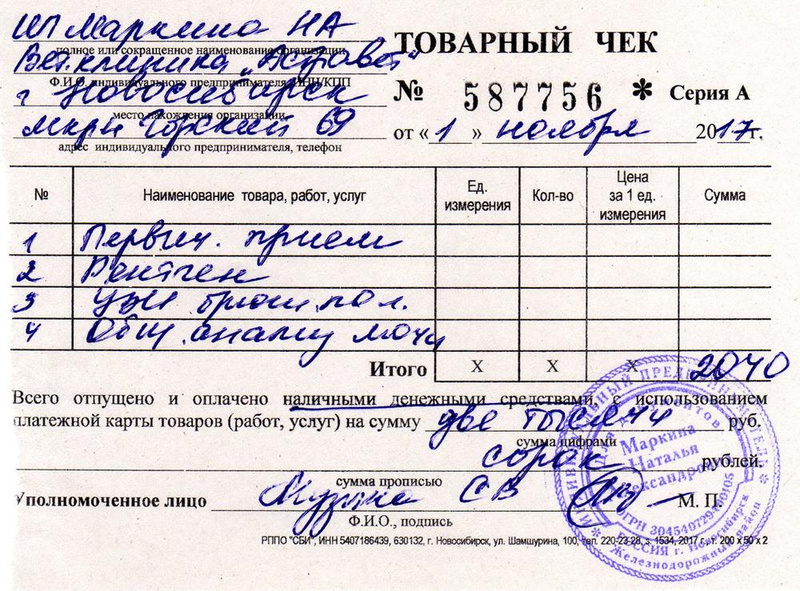 ИП Маркина НА
полное или сокращенное наименование организации
Вет.клиника "Аставет"
Ф.И.О. индивидуального предпринимателя, ИНН/КПП
г Новосибирск
место нахождения организации
мкрн Горский 69
адрес индивидуального предпринимателя, телефон
ТОВАРНЫЙ ЧЕК
№ 587756 * Серия А
от «1» ноября 2017г.
№ Наименование товара, работ, услуг Ед. измерения Кол-во Цена за 1 ед. измерения Сумма
1 Первич. прием
2 Рентген
3 УЗИ брюш.пол.
4 Общ.анализ мочи
Итого X X X 2040
Всего отпущено и оплачено наличными денежными средствами, с использованием
платежной карты товаров (работ, услуг) на сумму две тысячи руб.
сумма цифрами
сорок рублей.
сумма прописью
Уполномоченное лицо СВ М. П.
Ф.И.О., подпись
РППО "СБИ", ИНН 5407186439, 630132, г. Новосибирск, ул. Шамшурина, 100, тел. 220-23-28, з. 1534, 2017 г., т. 200 х 50 х 2
ИНДИВИДУАЛЬНЫЙ ПРЕДПРИНИМАТЕЛЬ
Для документов
Маркина
Наталья
Александровна
РОССИЯ г. Новосибирск
Железнодорожный район